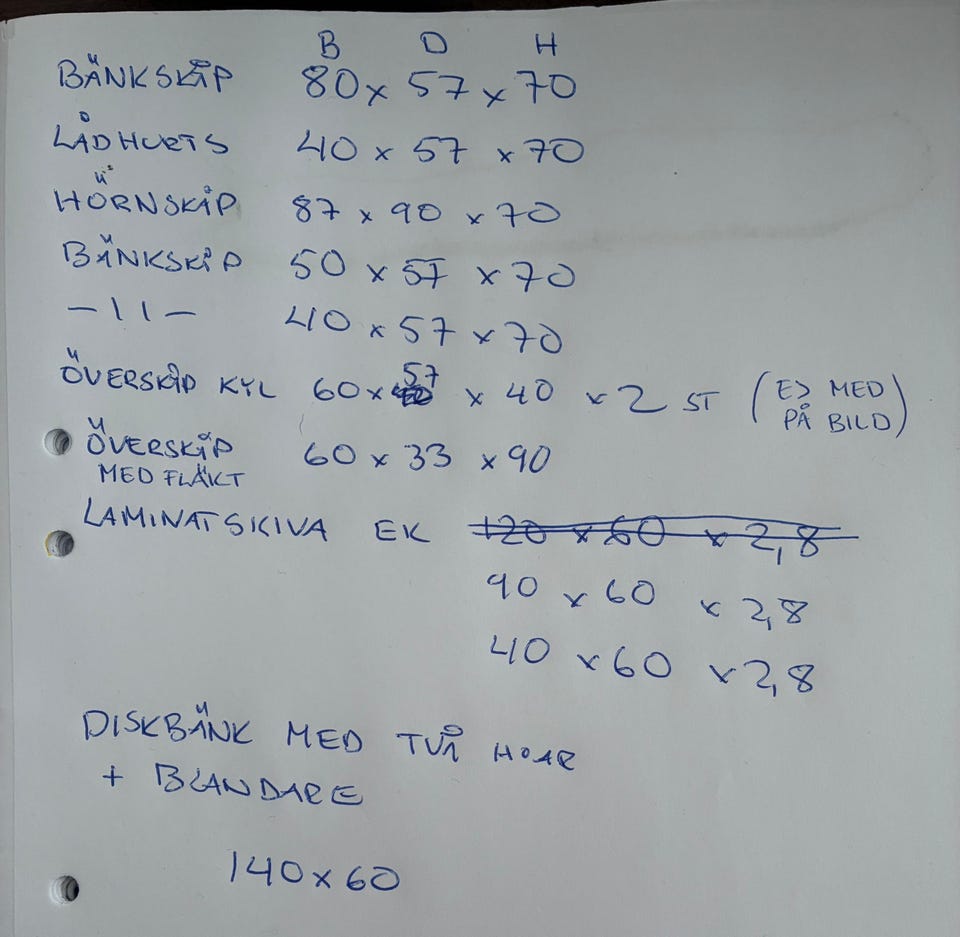 B D H
BÄNKSKÅP 80 x 57 x 70
LÅDHURTS 40 x 57 x 70
HÖRNSKÅP 87 x 90 x 70
BÄNKSKÅP 50 x 57 x 70
—11— 40 x 57 x 70
ÖVERSKÅP KYL 60 x 57 x 40 x 2 ST (EJ MED PÅ BILD)
ÖVERSKÅP 60 x 33 x 90
MED FLÄKT
LAMINATSKIVA EK 120 x 60 x 2,8
90 x 60 x 2,8
40 x 60 x 2,8
DISKBÄNK MED TVÅ HOAR
+ BLANDARE
140 x 60